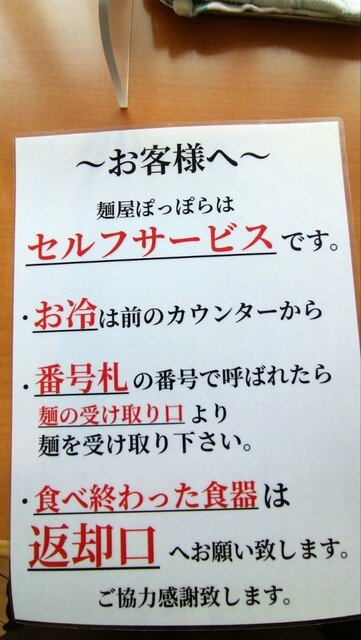 ～お客様へ～
麺屋ぽっぽらは
セルフサービスです。
・お冷は前のカウンターから
・番号札の番号で呼ばれたら
麺の受け取り口より
麺を受け取り下さい。
・食べ終わった食器は
返却口へお願い致します。
ご協力感謝致します。